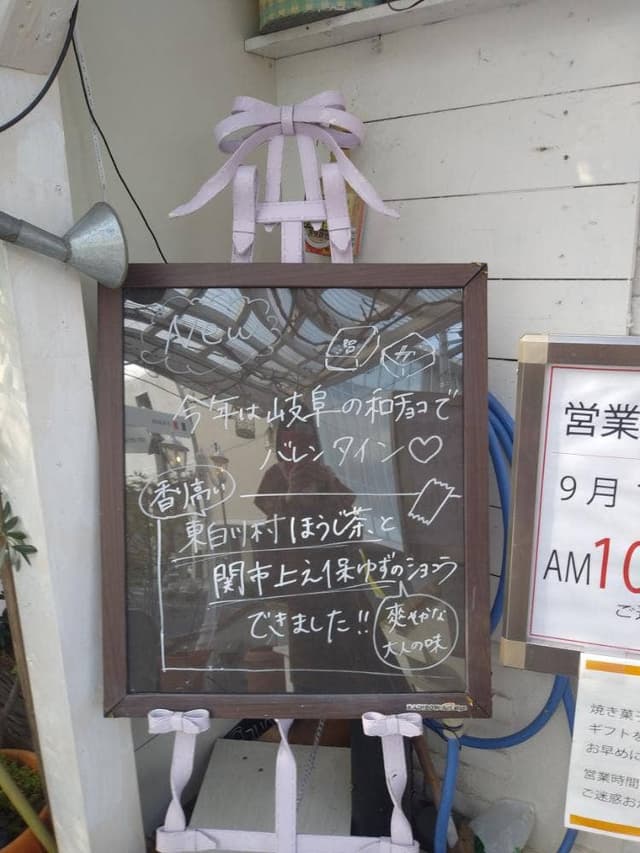 New
今年は岐阜の和チョコで
バレンタイン♡
香り高い
東白川村ほうじ茶、と
関市上之保ゆずのショコラ
できました!!
爽やかな
大人の味
営業
9月
AM10
ご
焼き菓子
ギフトを
お早めに
営業時間
ご迷惑お